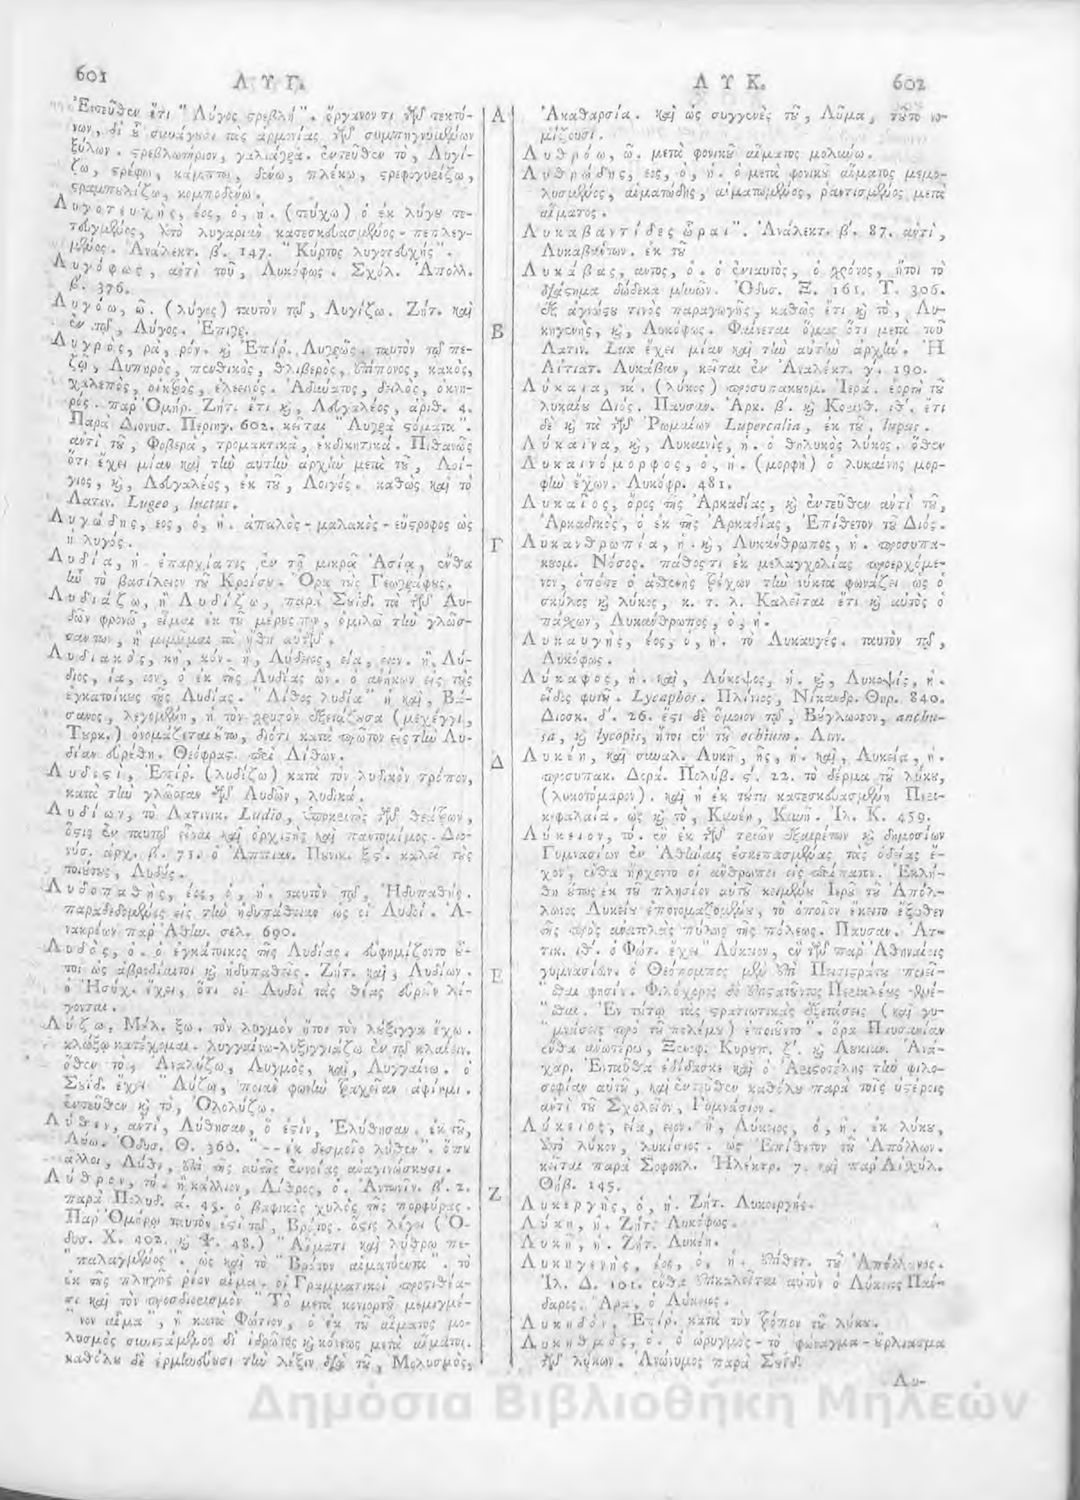 601 Λ Υ Γ.
Ἐντεῦθεν ἔτι " Λύγος στρεβλή". ὄργανόν τι τῶν τεκτό-
νων, δι' οὗ συνάγουσι τὰς ἁρμονίας τῶν συμπηγνυμένων
ξύλων. στρεβλωτήριον, ἐντεῦθεν τὸ, Λυγί-
ζω, στρέφω, κάμπτω, δένω, πλέκω, στρεφογυρίζω,
στραμπουλίζω, κομποδένω.
Λυγοτευχής, έος, ὁ, ἡ. (τεύχω) ὁ ἐκ λύγου τε-
τευγμένος, ὑπὸ λυγαριᾶς κατεσκευασμένος - πεπλεγ-
μένος. Ἀνάλεκτ. β'. 147. "Κύρτος λυγοτευχής".
Λυγόφως, ἀντὶ τοῦ, Λυκόφως. Σχόλ. Ἀπολλ.
β'. 376.
Λυγόω, ῶ. (λύγος) ταὐτὸν τῷ, Λυγίζω. Ζήτ. καὶ
ἐν τῷ, Λύγος. Ἐπιγρ.
Λυγρὸς, ρὰ, ρόν. καὶ Ἐπίρ. Λυγρῶς. ταὐτὸν τῷ πε-
ζῷ, Λυπηρὸς, πενθικὸς, θλιβερὸς, ἐπίπονος, κακὸς,
χαλεπὸς, οἰκτρὸς, ἐλεεινός. Ἀδύνατος, δειλὸς, ὀκνη-
ρός. παρ' Ὁμήρ. Ζήτ. ἔτι καὶ, Λευγαλέος, ἀριθ. 4.
Παρὰ Διονυσ. Περιηγ. 602. κεῖται "Λυγρὰ στόματα".
ἀντὶ τοῦ, Φοβερὰ, τρομακτικὰ, ἐκδικητικά. Πιθανῶς
ὅτι ἔχει μίαν καὶ τὴν αὐτὴν ἀρχὴν μετὰ τοῦ, Λοί-
γιος, καὶ, Λευγαλέος, ἐκ τοῦ, Λοιγός. καθὼς καὶ τὸ
Λατιν. Lugeo, luctus.
Λυγώδης, εος, ὁ, ἡ. ἁπαλὸς - μαλακὸς - εὔστροφος ὡς
ἡ λυγός.
Λυδία, ἡ ἐπαρχία τις ἐν τῇ μικρᾷ Ἀσίᾳ, ἔνθα
ἦν τὸ βασίλειον τοῦ Κροίσου. Ὅρα τοὺς Γεωγράφους.
Λυδιάζω, ἢ Λυδίζω, παρὰ Σουΐδ. τὰ τῶν Λυ-
δῶν φρονῶ, εἶμαι ἐκ τοῦ μέρους των, ὁμιλῶ τὴν γλῶσ-
σαν των, ἢ μιμοῦμαι τὰ ἤθη αὐτῶν.
Λυδιακὸς, κὴ, κόν. ἢ, Λύδειος, εία, ειον. ἢ, Λύ-
διος, ία, ιον, ὁ ἐκ τῆς Λυδίας ὤν. ὁ ἀνήκων εἰς τοὺς
ἐγκατοίκους τῆς Λυδίας. "Λίθος λυδία" ἡ καὶ, Βά-
σανος, λεγομένη, ἡ τὸν χρυσὸν ἐξετάζουσα (μεχέγγι,
Τουρκ.) ὀνομάζεται οὕτω, διότι κατὰ πρῶτον εἰς τὴν Λυ-
δίαν εὑρέθη. Θεόφρας. περὶ Λίθων.
Λυδιστὶ, Ἐπίρ. (λυδίζω) κατὰ τὸν λυδικὸν τρόπον,
κατὰ τὴν γλῶσσαν τῶν Λυδῶν, λυδικά.
Λυδίων, τὸ Λατινικ. Ludio, ὑποκριτὴς τῶν θεάτρων,
ὅστις ἐν ταυτῷ εἶναι καὶ ὀρχιστὴς καὶ παντομίμος. Διο-
νύσ. ἀρχ. β'. 71. ὁ Ἀππιαν. Πουνικ. ξϛ'. καλεῖ τοὺς
τοιούτους, Λυδούς.
Λυδοπαθὴς, έος, ὁ, ἡ. ταὐτὸν τῷ, Ἡδυπαθής.
παραδεδομένος εἰς τὴν ἡδυπάθειαν ὡς οἱ Λυδοί. Ἀ-
νακρέων παρ' Ἀθην. σελ. 690.
Λυδὸς, ὁ. ὁ ἐγκάτοικος τῆς Λυδίας. εὐφημίζοντο οὗ-
τοι ὡς ἁβροδίαιτοι καὶ ἡδυπαθεῖς. Ζήτ. καὶ, Λυδίων.
ὁ Ἡσύχ. ἔχει, ὅτι οἱ Λυδοὶ τὰς θέας εὑρεῖν λέ-
γονται.
Λύζω, Μέλ. ξω. τὸν λυγμὸν ἤτοι τὸν λόξιγγα ἔχω.
κλώζω κατέχομαι. λυγγαίνω-λυξιγγιάζω ἐν τῷ κλαίειν.
ὅθεν τὸ, Ἀναλύζω, Λυγμὸς, καὶ, Λυγγαίνω. ὁ
Σουΐδ. ἔχει "Λύζω, ποιὰν φωνὴν τραχεῖαν ἀφίημι.
ἐντεῦθεν καὶ τὸ, Ὀλολύζω.
Λύθεν, ἀντὶ, Λύθησαν, ὅ ἐστιν, Ἐλύθησαν. ἐκ τοῦ,
Λύω. Ὀδυσ. Θ. 360. "-- ἐκ δεσμοῖο λύθεν". ὅπου
ἄλλοι, Λύθη, ἐπὶ τῆς αὐτῆς ἐννοίας ἀναγινώσκουσι.
Λύθρον, τό. ἢ κάλλιον, Λύθρος, ὁ. Ἀντωνῖν. β'. 2.
παρὰ Πολυδ. α'. 45. ὁ βαφικὸς χυλὸς τῆς πορφύρας.
Παρ' Ὁμήρῳ ταὐτὸν ἐστὶ τῷ, Βρότος. ὅστις λέγει (Ὀ-
δυσ. Χ. 402. καὶ Ψ. 48.) "Αἵματι καὶ λύθρῳ πε-
"παλαγμένος". ὡς καὶ τὸ "Βρότον αἱματόεντα". τὸ
ἐκ τῆς πληγῆς ῥέον αἷμα. οἱ Γραμματικοὶ προστιθέα-
σι καὶ τὸν προσδιορισμὸν "Τὸ μετὰ κονιορτοῦ μεμιγμέ-
"νον αἷμα", ἢ κατὰ Φώτιον, ὁ ἐκ τοῦ αἵματος μο-
λυσμὸς συνιστάμενος δι' ἱδρῶτος καὶ κόνεως μετὰ αἵματος.
καθόλου δὲ ἑρμηνεύουσι τὴν λέξιν διὰ τοῦ, Μολυσμὸς,
Α
Β
Γ
Δ
Ε
Ζ
Λ Υ Κ. 602
Ἀκαθαρσία. καὶ ὡς συγγενὲς τοῦ, Λῦμα, τοῦτο νο-
μίζουσι.
Λυθρόω, ῶ. μετὰ φονικοῦ αἵματος μολύνω.
Λυθρώδης, εος, ὁ, ἡ. ὁ μετὰ φονικοῦ αἵματος μεμο-
λυσμένος, αἱματώδης, αἱματωμένος, ῥαντισμένος μετὰ
αἵματος.
Λυκαβαντίδες ὧραι". Ἀνάλεκτ. β'. 87. ἀντὶ,
Λυκαβάντων. ἐκ τοῦ
Λυκάβας, αντος, ὁ. ὁ ἐνιαυτὸς, ὁ χρόνος, ἤτοι τὸ
διάστημα δώδεκα μηνῶν. Ὀδυσ. Ξ. 161. Τ. 306.
ἐξ ἀγνώστου τινὸς παραγωγῆς, καθὼς ἔτι καὶ τὸ, Λυ-
κηγενὴς, καὶ, Λυκόφως. Φαίνεται ὅμως ὅτι μετὰ τοῦ
Λατιν. Lux ἔχει μίαν καὶ τὴν αὐτὴν ἀρχήν. Ἡ
Αἰτιατ. Λυκάβαν, κεῖται ἐν Ἀναλέκτ. γ'. 190.
Λύκαια, τά. (λύκος) προσυπακουομ. Ἱερά. ἑορτὴ τοῦ
λυκαίου Διός. Παυσαν. Ἀρκ. β'. καὶ Κορινθ. ιθ'. ἔτι
δὲ καὶ τὰ τῶν Ῥωμαίων Lupercalia, ἐκ τοῦ, lupus.
Λύκαινα, καὶ, Λυκαινὶς, ἡ. ὁ θηλυκὸς λύκος. ὅθεν
Λυκαινόμορφος, ὁ, ἡ. (μορφὴ) ὁ λυκαίνης μορ-
φὴν ἔχων. Λυκόφρ. 481.
Λυκαῖος, ὄρος τῆς Ἀρκαδίας, καὶ ἐντεῦθεν ἀντὶ τοῦ,
Ἀρκαδικὸς, ὁ ἐκ τῆς Ἀρκαδίας, Ἐπίθετον τοῦ Διός.
Λυκανθρωπία, ἡ. καὶ, Λυκάνθρωπος, ἡ. προσυπα-
κουομ. Νόσος. πάθος τι ἐκ μελαγχολίας προερχόμε-
νον, ὁπότε ὁ ἀσθενὴς τρέχων τὴν νύκτα φωνάζει ὡς ὁ
σκύλος καὶ λύκος, κ. τ. λ. Καλεῖται ἔτι καὶ αὐτὸς ὁ
πάσχων, Λυκάνθρωπος, ὁ, ἡ.
Λυκαυγὴς, έος, ὁ, ἡ. τὸ Λυκαυγές. ταὐτὸν τῷ,
Λυκόφως.
Λύκαψος, ἡ. καὶ, Λύκοψος, ἡ. καὶ, Λυκοψὶς, ἡ.
εἶδος φυτοῦ. Lycaphos. Πλίνιος, Νίκανδρ. Θηρ. 840.
Διοσκ. δ'. 26. ἔστι δὲ ὅμοιον τῷ, Βουγλώσσου, anchu-
sa, καὶ lycopsis, ἤτοι ἐν τῷ echium. Λιν.
Λυκέη, καὶ συναλ. Λυκῆ, ῆς, ἡ. καὶ, Λυκεία, ἡ.
προσυπακ. Δορά. Πολύβ. ϛ'. 22. τὸ δέρμα τοῦ λύκου,
(λυκοτόμαρον). καὶ ἡ ἐκ τούτου κατεσκευασμένη Περι-
κεφαλαία. ὡς καὶ τὸ, Κυνέη, Κυνῆ. Ἰλ. Κ. 459.
Λύκειον, τό. ἓν ἐκ τῶν τριῶν ἐξαιρέτων καὶ δημοσίων
Γυμνασίων ἐν Ἀθήναις ἐσκεπασμένας τὰς ὁδείας ἔ-
χον, ἔνθα ἤρχοντο οἱ ἄνθρωποι εἰς περίπατον. Ἐκλή-
θη οὕτως ἐκ τοῦ πλησίον αὐτοῦ κειμένου Ἱεροῦ τοῦ Ἀπόλ-
λωνος Λυκείου ἐπονομαζομένου, τὸ ὁποῖον ἔκειτο ἔξωθεν
τῆς πρὸς ἀνατολὰς πύλης τῆς πόλεως. Παυσαν. Ἀτ-
τικ. ιθ'. ὁ Φώτ. ἔχει "Λύκειον, ἓν τῶν παρ' Ἀθηναίοις
γυμνασίων. ὁ Θεόπομπος μὲν ἐπὶ Πεισιστράτου ποιεῖ-
"σθαί φησίν. Φιλόχορος δὲ ἐπιστατοῦντος Περικλέους γενέ-
"σθαι. Ἐν τούτῳ τὰς στρατιωτικὰς ἐξετάσεις (καὶ γυ-
"μνάσεις πρὸ τοῦ πολέμου) ἐποιοῦντο". ὅρα Παυσανίαν
ἔνθα ἀνωτέρω, Ξενοφ. Κυρουπ. ζ'. καὶ Λουκιαν. Ἀνά-
χαρ. Ἐνταῦθα ἐδίδασκε καὶ ὁ Ἀριστοτέλης τὴν φιλο-
σοφίαν αὑτοῦ, καὶ ἐντεῦθεν καθόλου παρὰ τοῖς ὑστέροις
ἀντὶ τοῦ Σχολεῖον, Γυμνάσιον.
Λύκειος, εία, ειον. ἢ, Λύκειος, ὁ, ἡ. ἐκ λύκου,
ἀπὸ λύκον, λυκίσιος. ὡς Ἐπίθετον τοῦ Ἀπόλλων.
κεῖται παρὰ Σοφοκλ. Ἠλέκτρ. 7. καὶ παρ' Αἰσχύλ.
Θήβ. 145.
Λυκεργὴς, ὁ, ἡ. Ζήτ. Λυκοεργής.
Λύκη, ἡ. Ζήτ. Λυκόφως.
Λυκῆ, ἡ. Ζήτ. Λυκέη.
Λυκηγενὴς, έος, ὁ, ἡ. Ἐπίθετ. τοῦ Ἀπόλλωνος.
Ἰλ. Δ. 101. ἔνθα ἐπικαλεῖται αὐτὸν ὁ Λύκιος Πάν-
δαρος. Ἄρα, ὁ Λύκιος.
Λυκηδὸν, Ἐπίρ. κατὰ τὸν τρόπον τοῦ λύκου.
Λυκηθμὸς, ὁ. ὁ ὠρυγμὸς - τὸ φώναγμα - οὔρλιασμα
τῶν λύκων. Ἀνώνυμος παρὰ Σουΐδ.
Λυ-
Δημόσια Βιβλιοθήκη Μηλεών